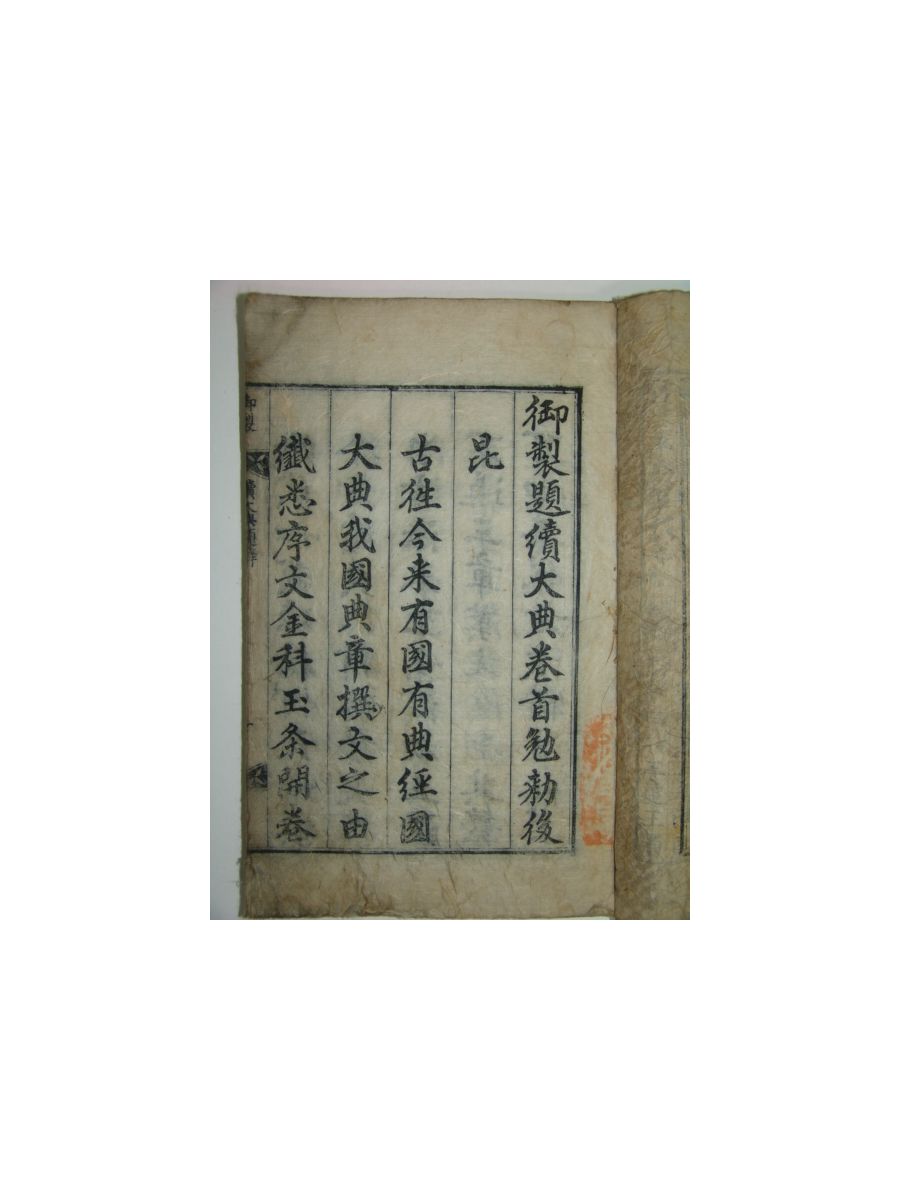 御製題續大典卷首勉勑後
昆
古徃今来有國有典經國
大典我國典章撰文之由
纖悉序文金科玉条開卷
御製